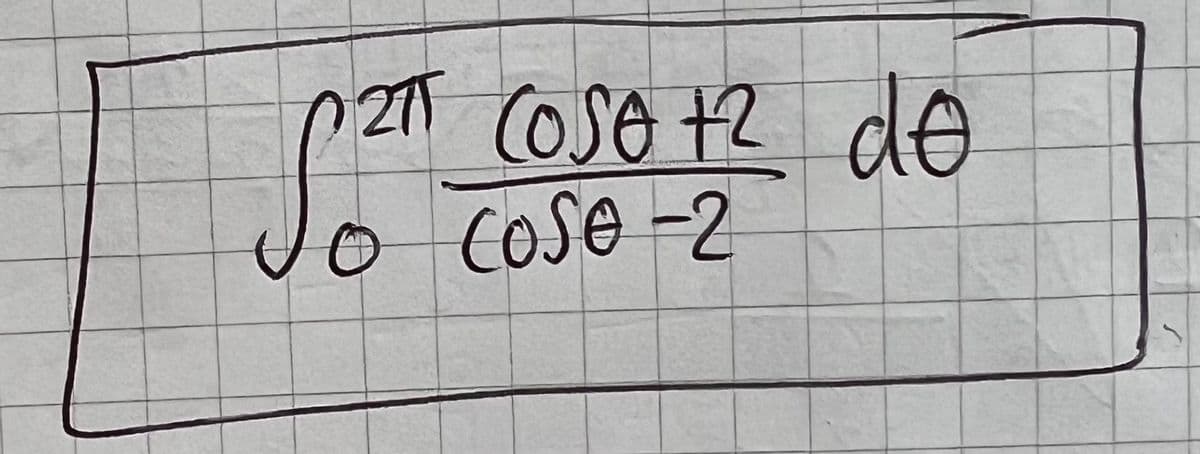 ∫₀^2π (cosθ+2)/(cosθ-2) dθ